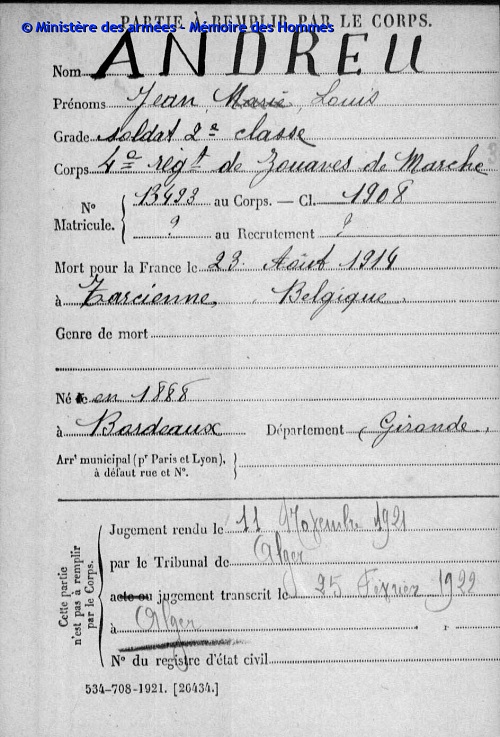 PARTIE À REMPLIR PAR LE CORPS.
© Ministère des armées - Mémoire des Hommes
Nom ANDREU
Prénoms Jean, Marie, Louis
Grade soldat 2e classe
Corps 4e regt de Zouaves de Marche
N° Matricule. 13493 au Corps. — Cl. 1908
? au Recrutement ?
Mort pour la France le 23 Août 1914
à Tarcienne, Belgique.
Genre de mort
Né le en 1888
à Bordeaux Département Gironde.
Arrt municipal (pr Paris et Lyon),
à défaut rue et N°.
Cette partie n'est pas à remplir par le Corps.
Jugement rendu le 11 Novembre 1921
par le Tribunal de Alger
acte ou jugement transcrit le 25 Février 1922
à Alger
N° du registre d'état civil
534-708-1921. [26434.]